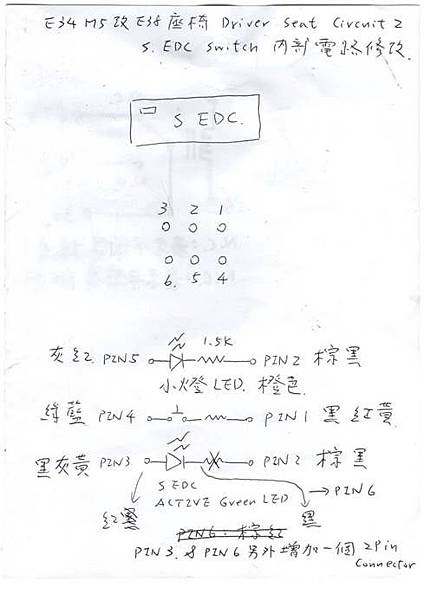 E34 M5 改 E38 座椅 Driver Seat Circuit 2
S. EDC Switch 內部電路修改.
S EDC.
3 2 1
6. 5 4
灰紅. PIN5 1.5K PIN2 棕黑
小燈 LED. 橙色
綠藍 PIN4 PIN1 黑 紅黃
黑灰黃 PIN3 PIN2 棕黑
S EDC
ACTIVE Green LED
→ PIN6
紅黑 黑
PIN6 : 棕紅
PIN3. 与 PIN6 另外增加一個 2Pin
Connector